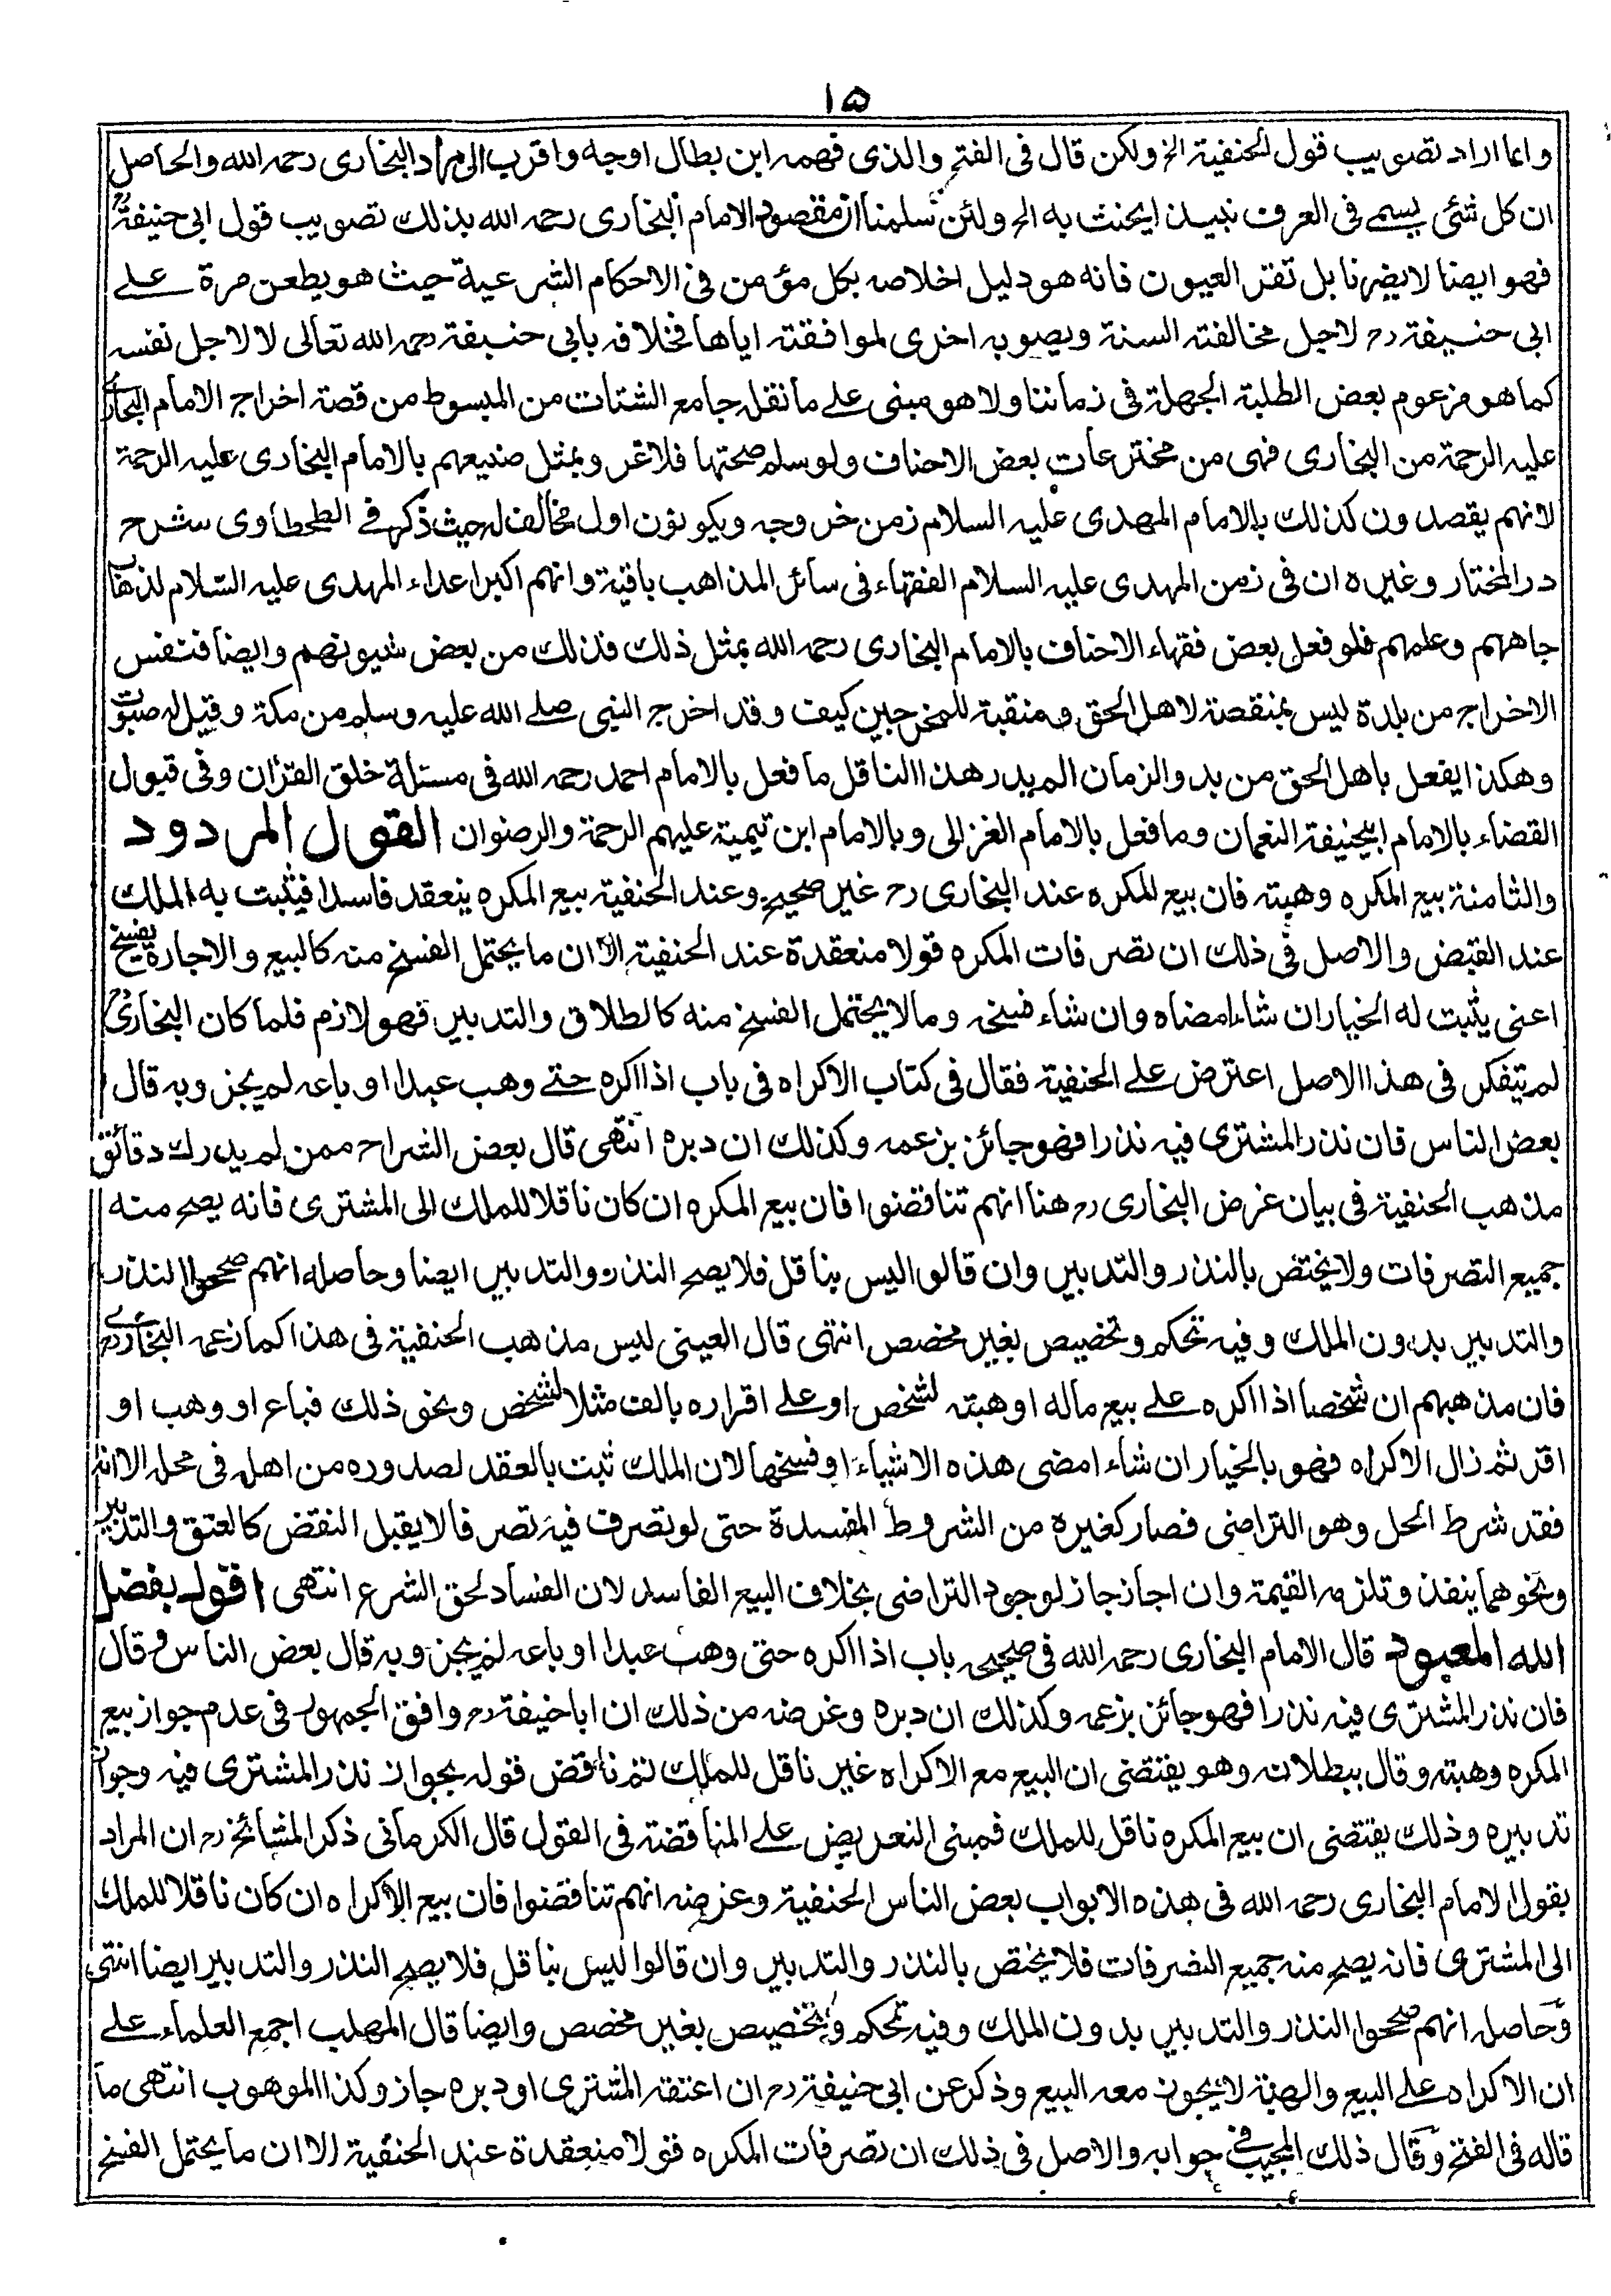 ١٥
وانما اراد تصويب قول الحنفية الخ ولكن قال فى الفتح والذى فهمه ابن بطال اوجه واقرب الى مراد البخارى رحمه الله والحاصل
ان كل شئى يسمے فى العرف نبيذا يحنث به الخ ولئن سلمنا ان مقصود الامام البخارى رحمه الله بذلك تصويب قول ابى حنيفةرح
فهو ايضا لايضرنا بل تقر العيون فانه هو دليل اخلاصه بكل مؤمن فى الاحكام الشرعية حيث هو يطعن مرة علے
ابى حنيفةرح لاجل مخالفته السنة ويصوبه اخرى لموافقته اياها فخلافه بابى حنيفة رحمه الله تعالى لا لاجل نفسه
كما هو مزعوم بعض الطلبة الجهلة فى زماننا ولا هو مبنى علے ما نقله جامع الشتات من المبسوط من قصة اخراج الامام البخارى
عليه الرحمة من البخارى فهى من مخترعات بعض الاحناف ولو سلم صحتها فلا غر و بمثل صنيعهم بالامام البخارى عليه الرحمة
لانهم يقصدون كذلك بالامام المهدى عليه السلام زمن خروجه ويكونون اول مخالف له حيث ذكر فے الطحطاوى شرح
در المختار وغيره ان فى زمن المهدى عليه السلام الفقهاء فى سائر المذاهب باقية وانهم اكبر اعداء المهدى عليه السلام لذهاب
جاههم وعلمهم فلو فعل بعض فقهاء الاحناف بالامام البخارى رحمه الله بمثل ذلك فذلك من بعض شيونهم وايضا فنفس
الاخراج من بلدة ليس بمنقصة لاهل الحق ومنقبة للمخرجين كيف وقد اخرج النبى صلے الله عليه وسلم من مكة وقيل له صبوت
وهكذا يفعل باهل الحق من بدو الزمان الم يدر هذا الناقل ما فعل بالامام احمد رحمه الله فى مسئلة خلق القرٰان وفى قبول
القضاء بالامام ابيحنيفة النعمان وما فعل بالامام الغزالى وبالامام ابن تيمية عليهم الرحمة والرضوان القول المردود
والثامنة بيع المكره وهبته فان بيع المكره عند البخارى رح غير صحيح وعند الحنفية بيع المكره ينعقد فاسدا فيثبت به الملك
عند القبض والاصل فى ذلك ان تصرفات المكره قولا منعقدة عند الحنفية الا ان ما يحتمل الفسخ منه كالبيع والاجارة يفسخ
اعنى يثبت له الخيار ان شاء امضاه وان شاء فسخه وما لا يحتمل الفسخ منه كالطلاق والتدبير فهو لازم فلما كان البخارىرح
لم يتفكر فى هذا الاصل اعترض علے الحنفية فقال فى كتاب الاكراه فى باب اذا اكره حتے وهب عبدا او باعه لم يجز وبه قال
بعض الناس فان نذر المشترى فيه نذرا فهو جائز بزعمه وكذلك ان دبره انتهى قال بعض الشراح ممن لم يدرك دقائق
مذهب الحنفية فى بيان غرض البخارى رح هنا انهم تناقضوا فان بيع المكره ان كان ناقلا للملك الى المشترى فانه يصح منه
جميع التصرفات ولا يختص بالنذر والتدبير وان قالوا ليس بناقل فلا يصح النذر والتدبير ايضا وحاصله انهم صححوا النذر
والتدبير بدون الملك وفيه تحكم وتخصيص بغير مخصص انتهى قال العينى ليس مذهب الحنفية فى هذا كما زعمه البخارى رح
فان مذهبهم ان شخصا اذا اكره علے بيع ماله او هبته لشخص او علے اقراره بالف مثلا لشخص ونحو ذلك فباع او وهب او
اقر ثم زال الاكراه فهو بالخيار ان شاء امضى هذه الاشياء او فسخها لان الملك ثبت بالعقد لصدوره من اهله فى محله الا انه
فقد شرط الحل وهو التراضى فصار كغيره من الشروط المفسدة حتى لو تصرف فيه تصرفا لا يقبل النقض كالعتق والتدبير
ونحوهما ينفذ وتلزمه القيمة وان اجاز جاز لوجود التراضى بخلاف البيع الفاسد لان الفساد لحق الشرع انتهى اقول بفضل
الله المعبود قال الامام البخارى رحمه الله فى صحيحه باب اذا اكره حتى وهب عبدا او باعه لم يجز وبه قال بعض الناس وقال
فان نذر المشترى فيه نذرا فهو جائز بزعمه وكذلك ان دبره وغرضه من ذلك ان اباحنيفةرح وافق الجمهور فى عدم جواز بيع
المكره وهبته وقال ببطلانه وهو يقتضى ان البيع مع الاكراه غير ناقل للملك ثم ناقض قوله بجواز نذر المشترى فيه وجواز
تدبيره وذلك يقتضى ان بيع المكره ناقل للملك فمبنى التعريض علے المناقضة فى القول قال الكرمانى ذكر المشائخ رح ان المراد
بقول الامام البخارى رحمه الله فى هذه الابواب بعض الناس الحنفية وغرضه انهم تناقضوا فان بيع الاكراه ان كان ناقلا للملك
الى المشترى فانه يصح منه جميع التصرفات فلا يختص بالنذر والتدبير وان قالوا ليس بناقل فلا يصح النذر والتدبير ايضا انتهى
وحاصله انهم صححوا النذر والتدبير بدون الملك وفيه تحكم وتخصيص بغير مخصص وايضا قال المهلب اجمع العلماء علے
ان الاكراه علے البيع والهبة لا يجوز معه البيع وذكر عن ابى حنيفةرح ان اعتقه المشترى او دبره جاز وكذا الموهوب انتهى ما
قاله فى الفتح وقال ذلك المجيب فى جوابه والاصل فى ذلك ان تصرفات المكره قولا منعقدة عند الحنفية الا ان ما يحتمل الفسخ